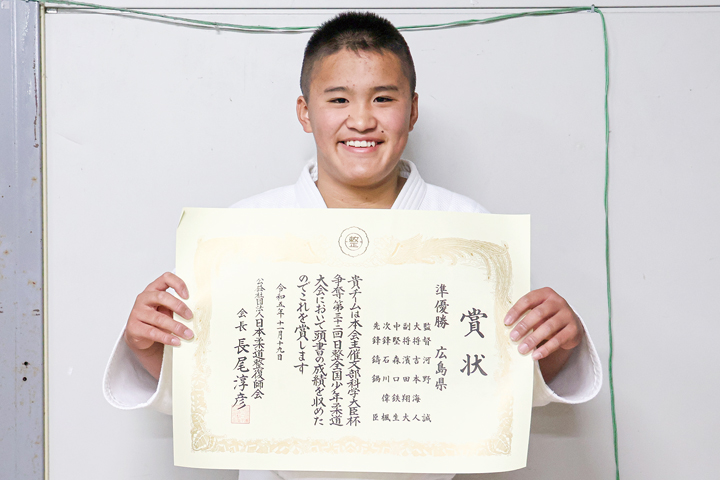 賞状
準優勝 広島県
監督 河野 誠
大将 吉本 海人
副将 濱田 翔大
中堅 森口 鉄生
次鋒 石川 偉楓
先鋒 鍋 臣
貴チームは本会主催文部科学大臣杯
争奪第三十二回日整全国少年柔道
大会において頭書の成績を収めた
のでこれを賞します
令和五年十一月十九日
公益社団法人日本柔道整復師会
会長 長尾淳彦